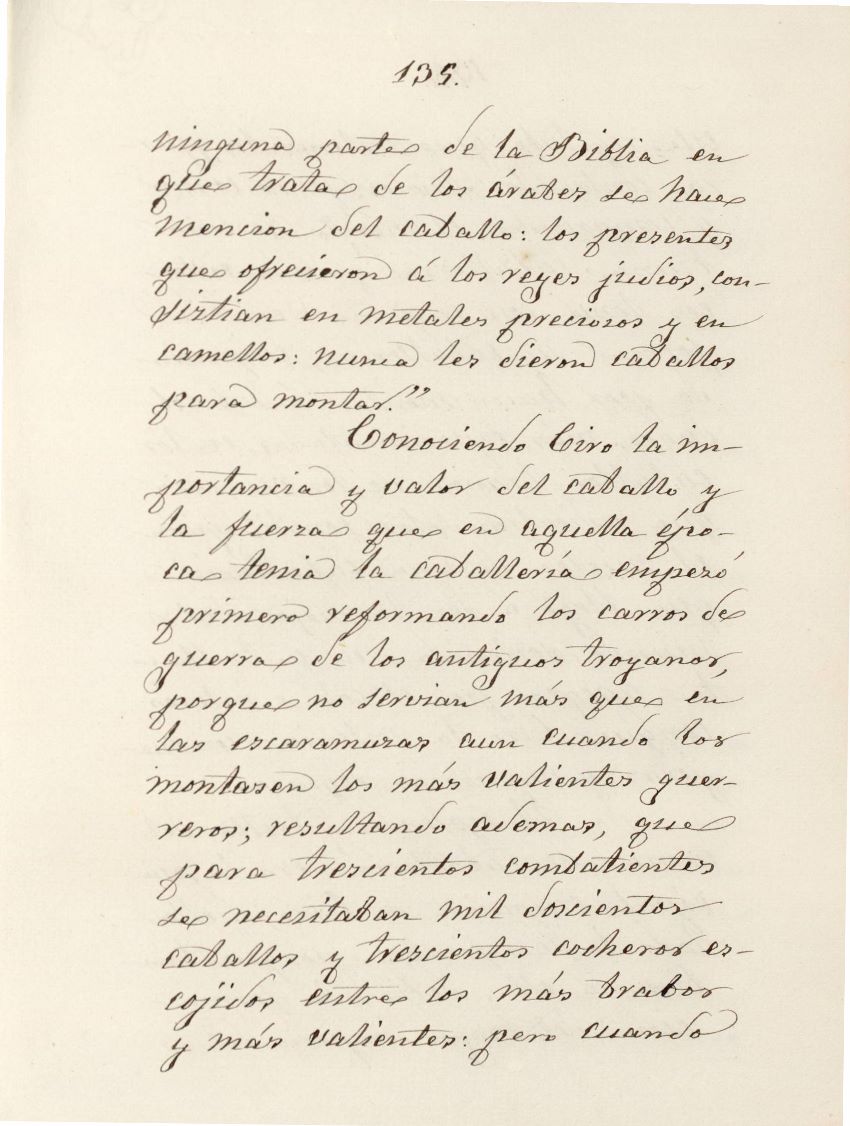 135.
ninguna parte de la Biblia en
que trata de los árabes se hace
mencion del caballo: los presentes
que ofrecieron á los reyes judios, con-
sistian en metales preciosos y en
camellos: nunca les dieron caballos
para montar."
Conociendo Ciro la im-
portancia y valor del caballo y
la fuerza que en aquella épo-
ca tenia la caballería empezó
primero reformando los carros de
guerra de los antiguos troyanos,
porque no servian más que en
las escaramuzas aun cuando los
montasen los más valientes guer-
reros; resultando ademas, que
para trescientos combatientes
se necesitaban mil doscientos
caballos y trescientos cocheros es-
cojidos entre los más
y más valientes: pero cuando